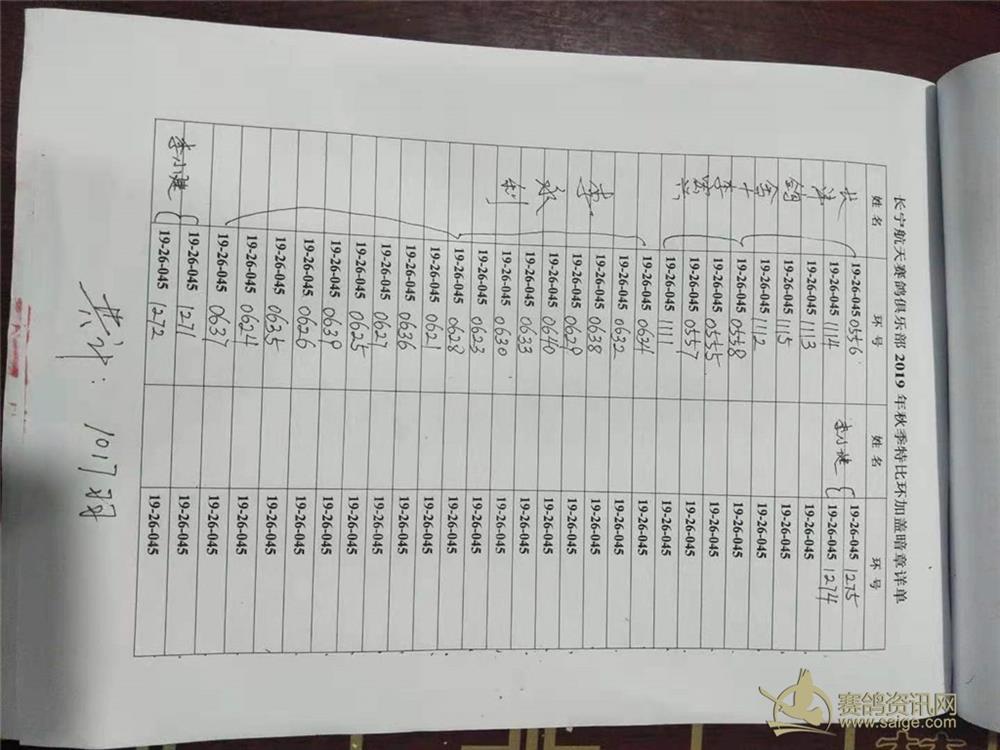 长宁航天赛鸽俱乐部 2019 年秋季特比环加盖暗章详单
姓名 环号 姓名 环号
19-26-045 0556 李小建 19-26-045 1275
19-26-045 1114 19-26-045 1274
19-26-045 1113 19-26-045
19-26-045 1115 19-26-045
19-26-045 1112 19-26-045
19-26-045 0558 19-26-045
19-26-045 0555 19-26-045
19-26-045 0557 19-26-045
19-26-045 1111 19-26-045
19-26-045 0634 19-26-045
19-26-045 0632 19-26-045
19-26-045 0638 19-26-045
19-26-045 0629 19-26-045
19-26-045 0640 19-26-045
19-26-045 0633 19-26-045
19-26-045 0630 19-26-045
19-26-045 0623 19-26-045
19-26-045 0628 19-26-045
19-26-045 0621 19-26-045
19-26-045 0636 19-26-045
19-26-045 0627 19-26-045
19-26-045 0625 19-26-045
19-26-045 0639 19-26-045
19-26-045 0626 19-26-045
19-26-045 0635 19-26-045
19-26-045 0624 19-26-045
19-26-045 0637 19-26-045
李小建 19-26-045 1271 19-26-045
19-26-045 1272 19-26-045
共计：1017羽
赛鸽资讯网
www.saige.com